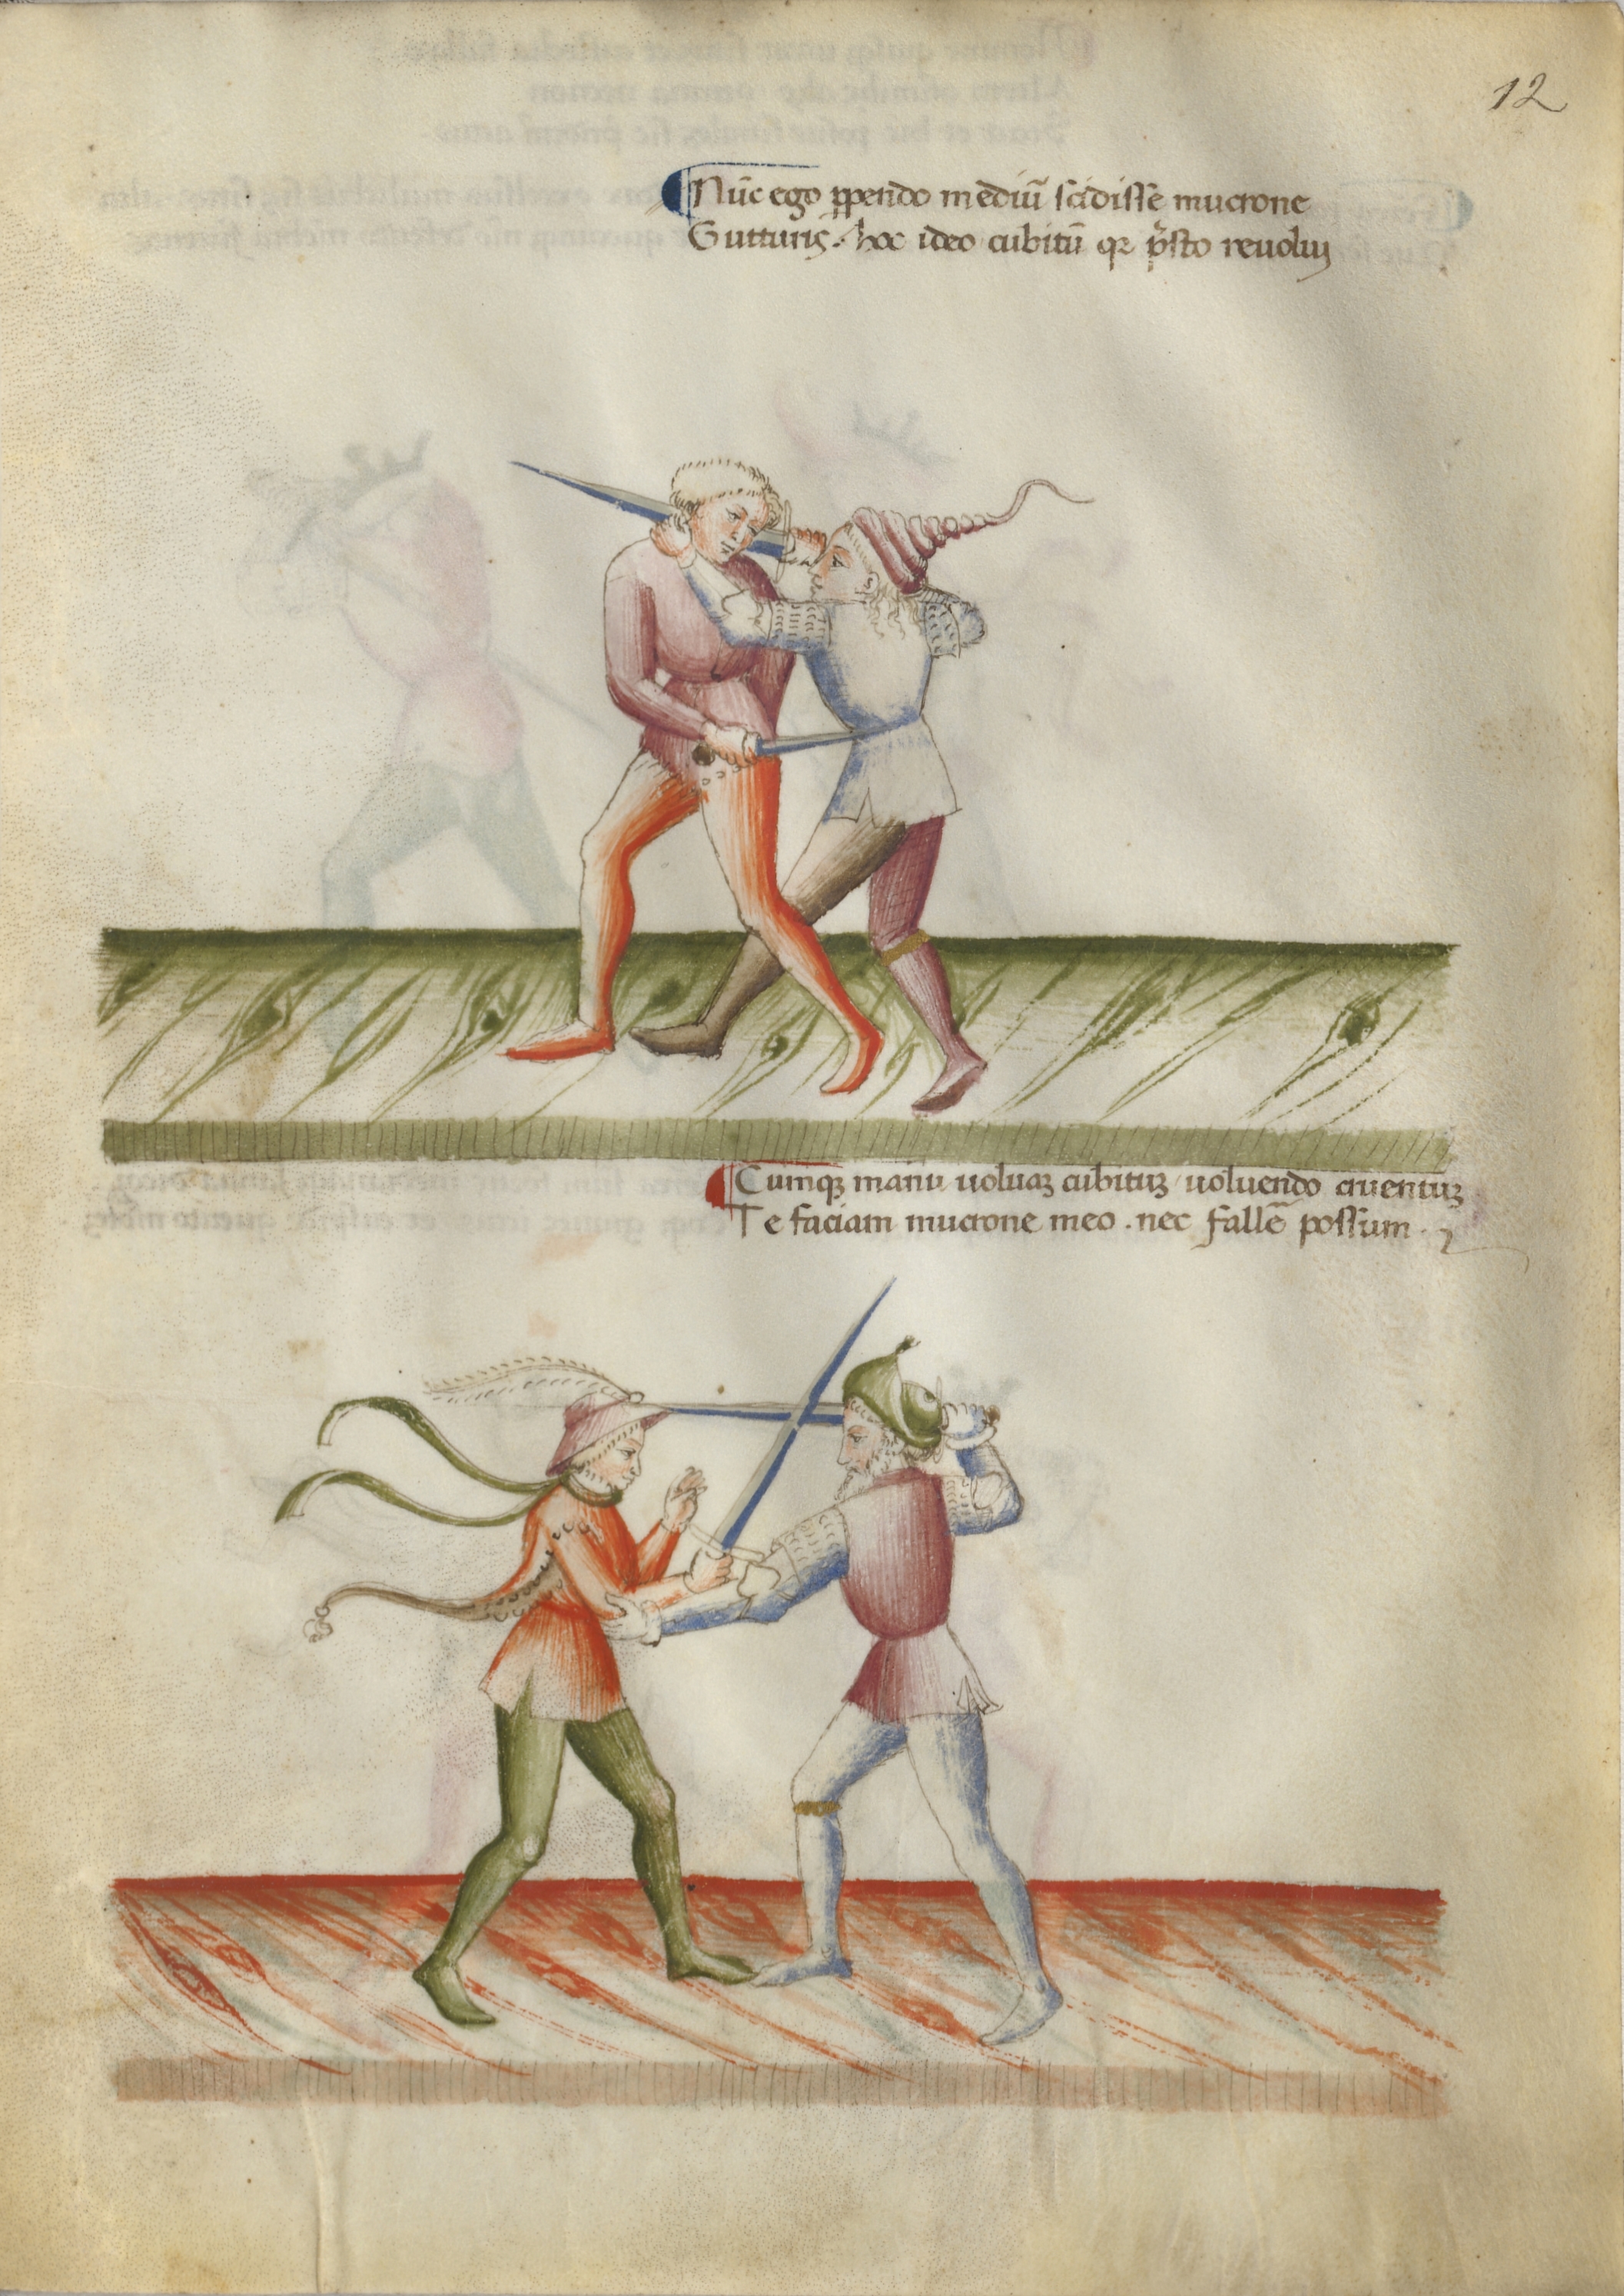 12
Nūc ego ꝓpendo mediū scidisse mucrone
Gutturis. hoc ideo cubitū qr p̄sto reuolui
Cumqꝫ manu voluaꝫ cubituꝫ / uoluendo cruentuꝫ
Te faciam mucrone meo . nec fallē possum .